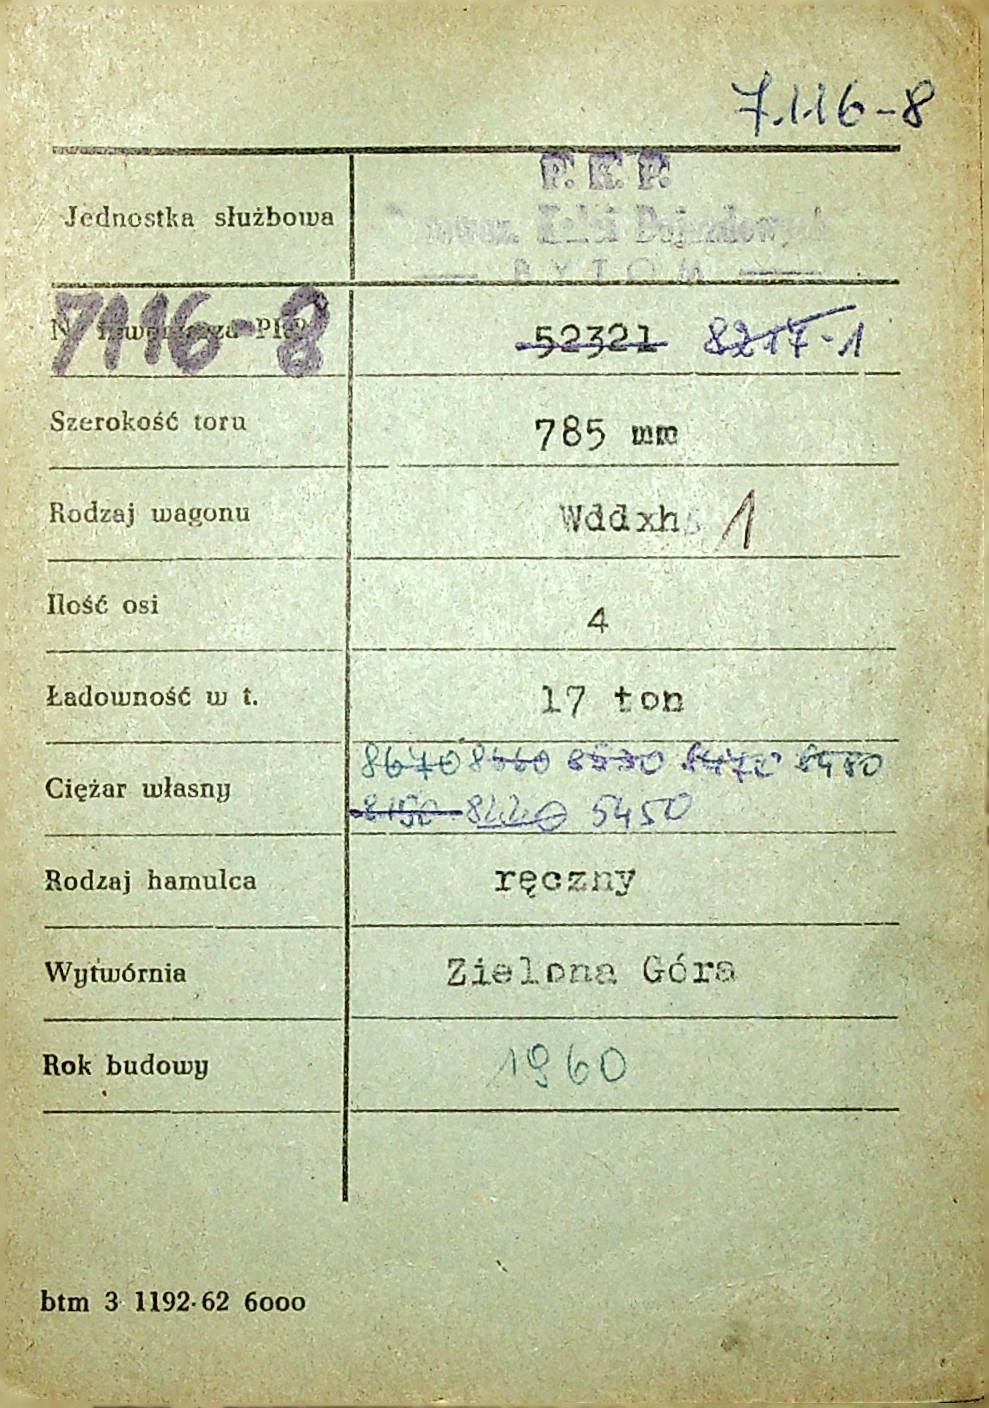 7.116-8
P. K. P.
Jednostka służbowa
Kolei Dojazdowych
BYTOM
7116-8
52321 8217-1
Szerokość toru 785 mm
Rodzaj wagonu Wddxhs 1
Ilość osi 4
Ładowność w t. 17 ton
8670 8560 8530 8470 8480
Ciężar własny
8150 8220 5450
Rodzaj hamulca ręczny
Wytwórnia Zielona Góra
Rok budowy 1960
btm 3 1192-62 6000